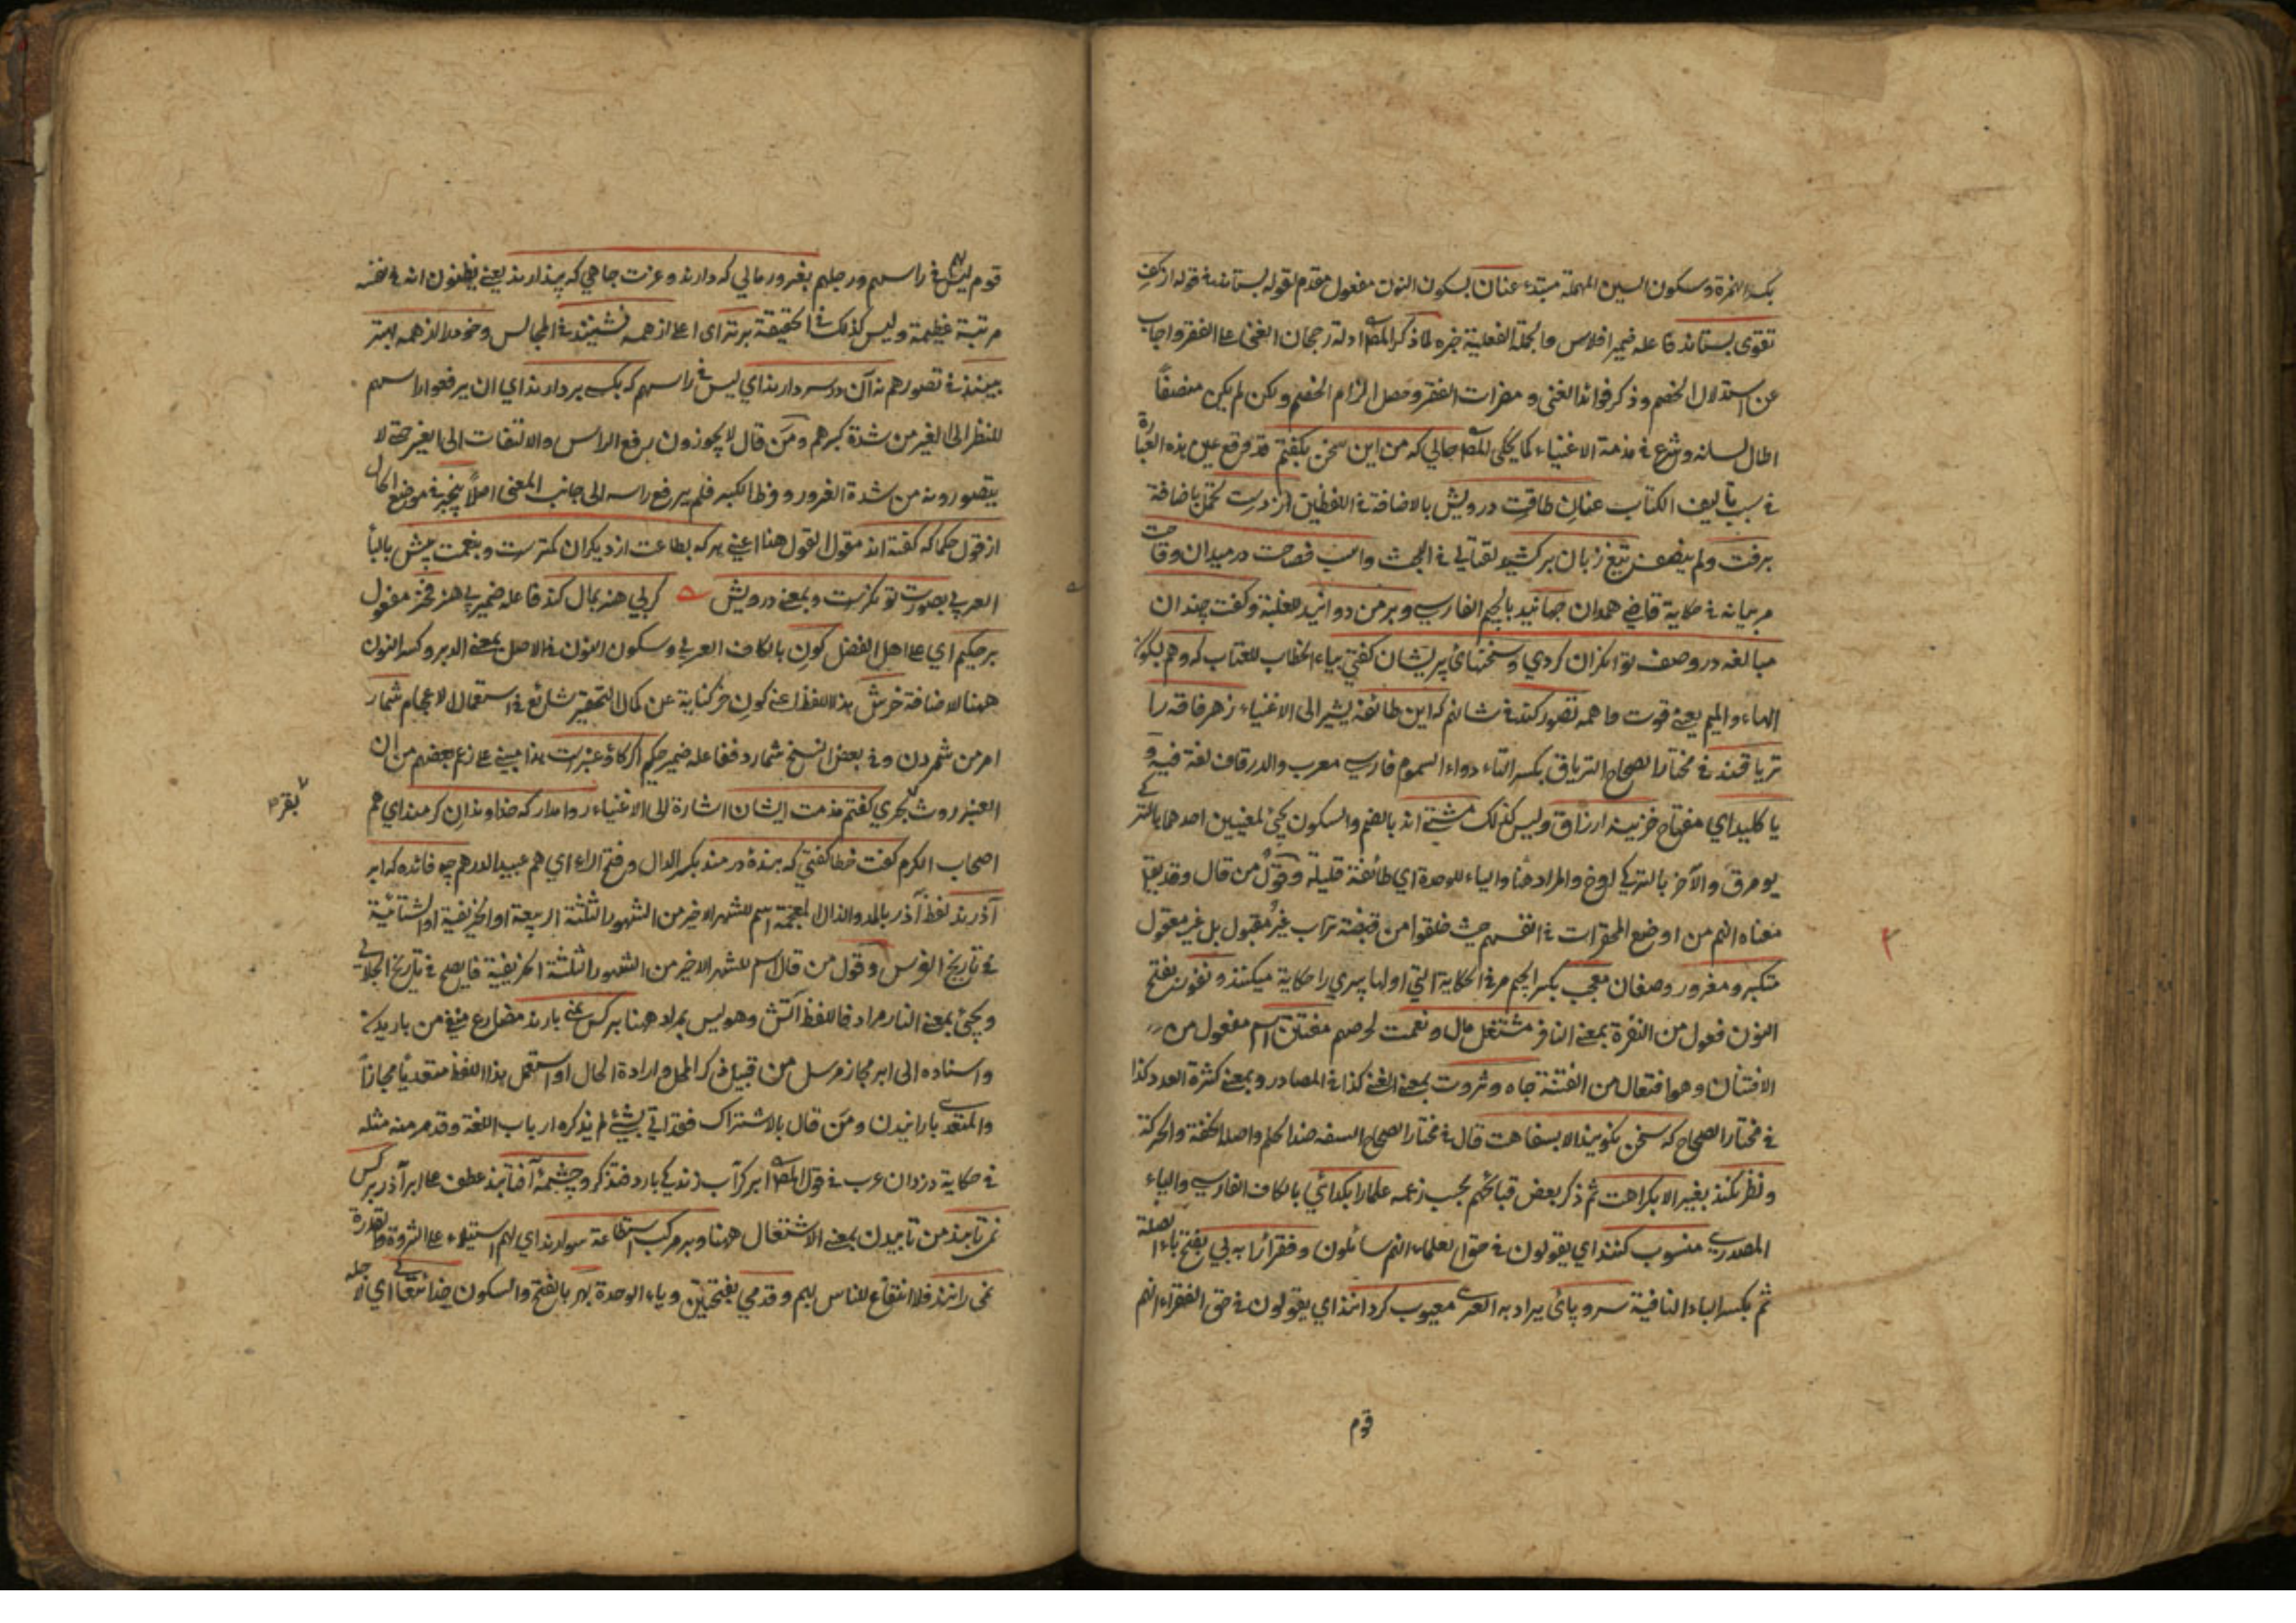 بكسر الهمزة وسكون السين المهملة مبتدء عنان بسكون النون مفعول مقدم لقوله بستاند في قوله از كف
تقوى بستاند فاعله ضمير افلاس والجملة الفعلية خبره لما ذكر المص ادلة رجحان الغنى على الفقر واجاب
عن استدلال الخصم وذكر فوائد الغنى ومضرات الفقر وحصل الزام الخصم ولكن لم يكن منصفاً
اطال لسانه وشرع في مذمة الاغنياء كما يحكى المص حالي كه من اين سخن بكفتم قد وقع عين هذه العبارة
في سبب تأليف الكتاب عنان طاقت درويش بالاضافة في اللفظين از دست تحمل باضافة
برفت ولم ينصف تيغ زبان بركشيد لقتالي في البحث واسب فصاحت در ميدان وقاحت
مر بيانه في حكاية قاضي همدان جهانيد بالجيم الفارسي وبر من دوانيد للغلبة وكفت چندان
مبالغه در وصف توانكران كردي وسخنهاي پريشان كفتي بياء الخطاب للعتاب كه وهم بكون
الهاء والميم يعني قوت واهمه تصور كند في شانهم كه اين طائفة يشير الى الاغنياء زهر فاقه را
ترياقند في مختار الصحاح الترياق بكسر التاء دواء السموم فارسي معرب والدرقاف لغة فيه و
يا كليد اي مفتاح خزينه ارزاق وليس كذلك مشتي اند بالضم والسكون يجئ لمعنيين احدهما بالتركي
يومرق والآخر بالتركي اوخ والمراد هنا والياء للوحدة اي طائفة قليلة وقول من قال وقد يقع
معناه انهم من اوضع المحقرات في انفسهم حيث خلقوا من قبضة تراب غير مقبول بل غير معقول
متكبر ومغرور وصفان معجب بكسر الجيم مر في الحكاية التي اولها پسري را حكاية ميكنند ونفور بفتح
النون فعول من النفرة بمعنى النافر مشتغل مال ونعمت لحرصهم مفتتن اسم مفعول من
الافتتان وهو افتعال من الفتنة جاه وثروت بمعنى الغنى كذا في المصادر وبمعنى كثرة العدد كذا
في مختار الصحاح كه سخن نكويند الا بسفاهت قال في مختار الصحاح السفه ضد الحلم واصله الخفة والحركة
ونظر نكنند بغير الا بكراهت ثم ذكر بعض قبائحهم بحسب زعمه علما را بكدائي بالكاف الفارسي والياء
المصدري منسوب كنند اي يقولون في حق العلماء انهم سائلون وفقرا را به بي بفتح باء الصلة
ثم بكسر الباء النافية سر وپائى يراد به العرى معيوب كردانند اي يقولون في حق الفقراء انهم
قوم
قوم ليس في راسهم ورجلهم بغرور مالي كه دارند وعزت جاهي كه پندارند يعني يظنون انه في نفسه
مرتبة عظيمة وليس كذلك في الحقيقة برتر اى اعلى از همه نشينند في المجالس وخود را از همه بهتر
بينند في تصورهم نه آن در سر دارند اي ليس في راسهم كه بكسى بر دارند اي ان يرفعوا راسهم
للنظر الى الغير من شدة كبرهم ومن قال لا يجوزون برفع الراس والالتفات الى الغير حتى لا
يتصورونه من شدة الغرور وفرط الكبر فلم يرفع راسه الى جانب المعنى اصلاً بيخبر في موضع الحال
از قول حكما كه كفته اند مقول القول هنا اعني هر كه بطاعت از ديكران كمترست وبنعمت بيش بالباء
العربي بصورت توانكرست وبمعنى درويش كر بي هنر بمال كند فاعله ضمير بي هنر فخر مفعول
بر حكيم اي على اهل الفضل كون بالكاف العربي وسكون النون في الاصل بمعنى الدبر وكسر النون
ههنا لاضافة خرش هذا اللفظ اعني كون خر كناية عن كمال التحقير شائع في استعمال الاعجام شمار
امر من شمردن وفي بعض النسخ شمارد ففاعله ضمير حكيم اكر كاو عنبرست هذا مبني على زعم بعضهم من ان
العنبر روث بحري كفتم مذمت ايشان اشارة الى الاغنياء روا مدار كه خداوندان كرمند اي هم
بقر
اصحاب الكرم كفت خطا كفتي كه بنده درمند بكسر الدال وفتح الراء اي هم عبيد الدرهم چه فائده كه ابر
آذرند لفظ آذر بالمد والذال المعجمة اسم للشهر الاخير من الشهور الثلثة الربيعة او الخريفية او الشتائية
في تاريخ الفرس وقول من قال اسم للشهر الاخير من الشهور الثلثة الخريفية فايصح في تاريخ الجلالي
ويجئ بمعنى النار مرادفا للفظ آتش وهو ليس بمراد ههنا بر كس نمي بارند مضارع منفي من باريدن
واسناده الى ابر مجاز مرسل من قبيل ذكر المحل وارادة الحال او استعمل هذا اللفظ متعدياً مجازاً
والمتعدي بارانيدن ومن قال بالاشتراك فقد اتى بشيء لم يذكره ارباب اللغة وقد مر منه مثله
في حكاية دزدان عرب في قول المص ابر كر آب زندكي بارد فتذكر وچشمه آفتابند عطف على ابر آذر بر كس
نمى تابند من تابيدن بمعنى الاشتغال ههنا وبر مركب استطاعة سوارند اي لهم استيلاء على الثروة والقدرة
نمى رانند فلا انتفاع للناس بهم وقدمي بفتحتين وياء الوحدة بهر بالفتح والسكون خدا تعالى اي لاجله